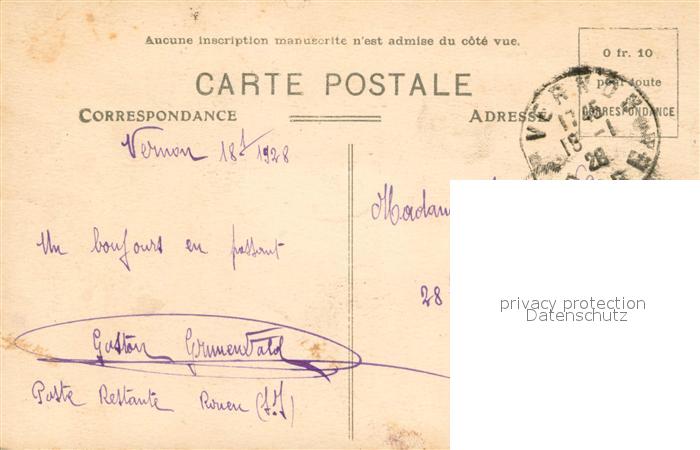 Aucune inscription manuscrite n'est admise du côté vue.
CARTE POSTALE
CORRESPONDANCE
ADRESSE
0 fr. 10
pour toute
CORRESPONDANCE
VERNON EURE
17 45
18 -1
28
Vernon 18-1-1928
Madame
Un bonjour en passant
28
Gaston Grunenwald
Poste Restante Rouen (S.I)
privacy protection
Datenschutz